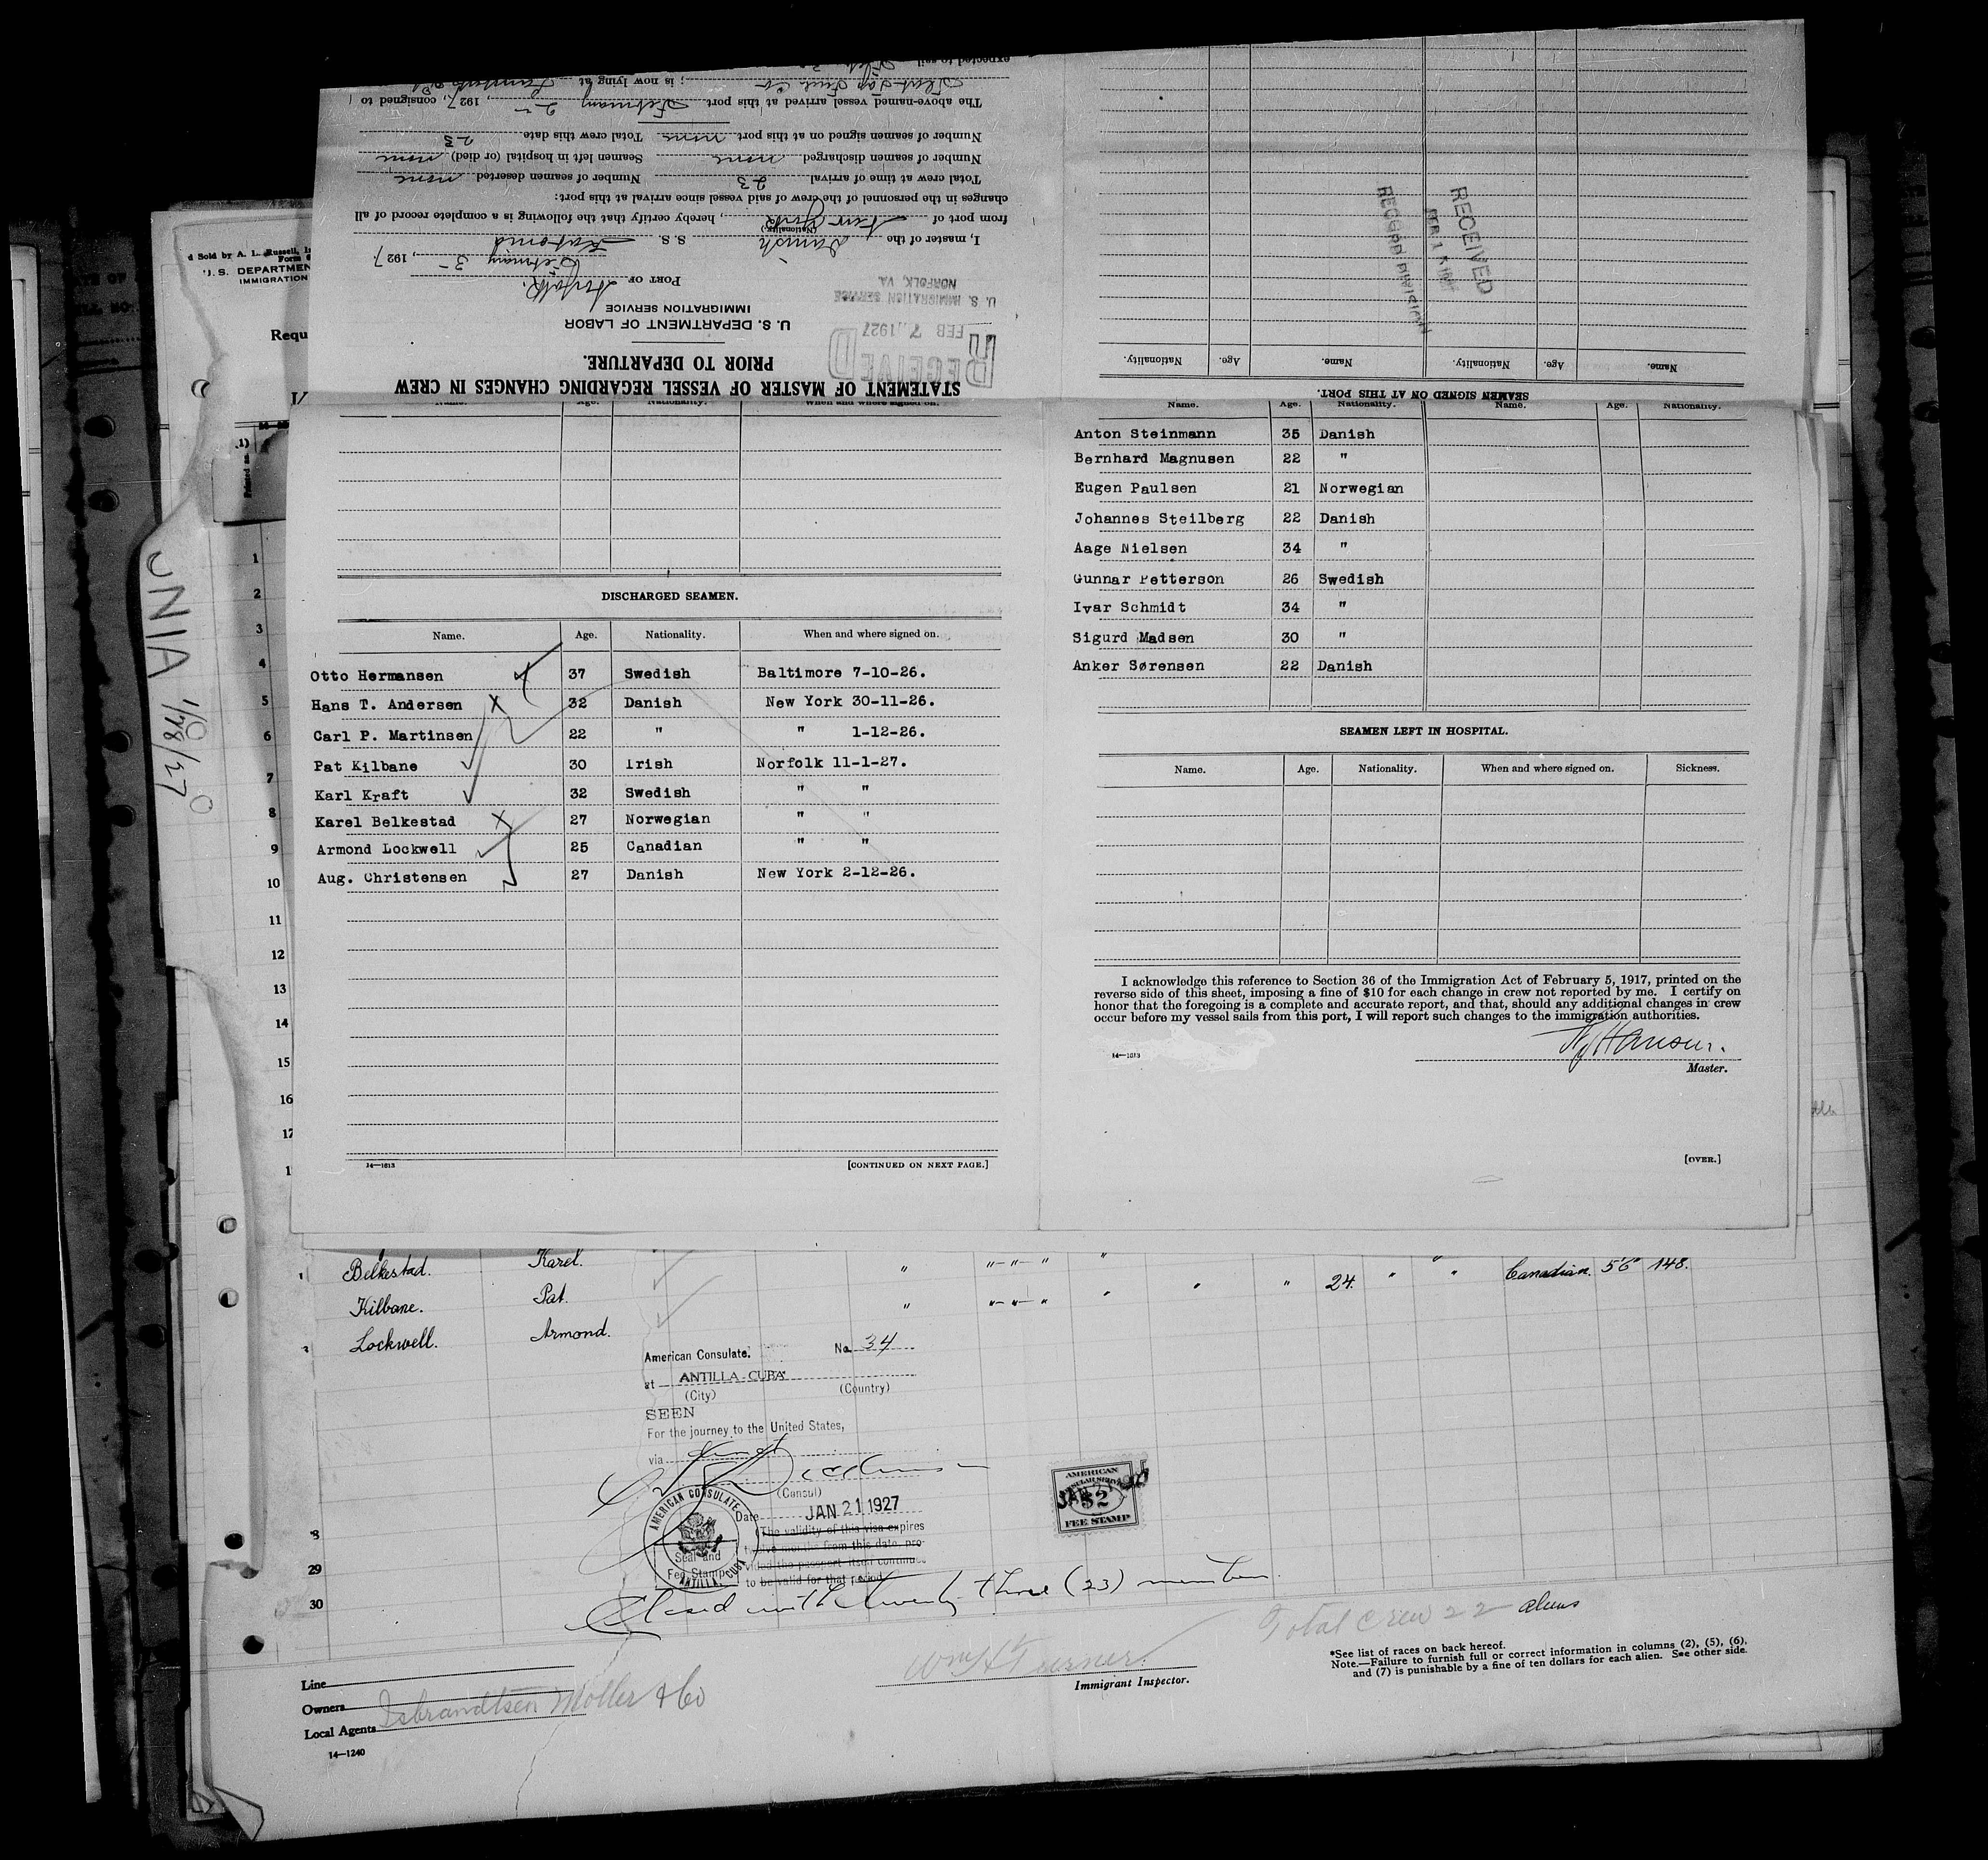 STATEMENT OF MASTER OF VESSEL REGARDING CHANGES IN CREW
PRIOR TO DEPARTURE.
U. S. DEPARTMENT OF LABOR
IMMIGRATION SERVICE
RECEIVED
FEB 7 1927
U. S. IMMIGRATION SERVICE
NORFOLK, VA.
PORT OF Norfolk.
February 5, 1927
I, master of the Danish S. S.
(Nationality)
from port of New York, hereby certify that the following is a complete record of all
changes in the personnel of the crew of said vessel since arrival at this port:
Total crew at time of arrival 23 Number of seamen deserted none
Number of seamen discharged none Seamen left in hospital (or died) none
Number of seamen signed on at this port none Total crew this date 23
The above-named vessel arrived at this port February 2, 1927, consigned to
; is now lying at
expected to sail
SEAMEN SIGNED ON AT THIS PORT.
Name. Age. Nationality. Name. Age. Nationality.
RECEIVED
RECORD DIVISION
d Sold by A. L. Russell,
U.S. DEPARTMEN
IMMIGRATION
Requ
ONIA
1
2
3
4
5
6
7
8
9
10
11
12
13
14
15
16
17
Name. Age. Nationality. When and where signed on.
DISCHARGED SEAMEN.
Name. Age. Nationality. When and where signed on.
Otto Hermansen 37 Swedish Baltimore 7-10-26.
Hans T. Andersen 32 Danish New York 30-11-26.
Carl P. Martinsen 22 " " 1-12-26.
Pat Kilbane 30 Irish Norfolk 11-1-27.
Karl Kraft 32 Swedish " "
Karel Belkestad 27 Norwegian " "
Armond Lockwell 25 Canadian " "
Aug. Christensen 27 Danish New York 2-12-26.
14—1613
[CONTINUED ON NEXT PAGE.]
Name. Age. Nationality. Name. Age. Nationality.
Anton Steinmann 35 Danish
Bernhard Magnusen 22 "
Eugen Paulsen 21 Norwegian
Johannes Steilberg 22 Danish
Aage Nielsen 34 "
Gunnar Petterson 26 Swedish
Ivar Schmidt 34 "
Sigurd Madsen 30 "
Anker Sørensen 22 Danish
SEAMEN LEFT IN HOSPITAL.
Name. Age. Nationality. When and where signed on. Sickness.
I acknowledge this reference to Section 36 of the Immigration Act of February 5, 1917, printed on the
reverse side of this sheet, imposing a fine of $10 for each change in crew not reported by me. I certify on
honor that the foregoing is a complete and accurate report, and that, should any additional changes in crew
occur before my vessel sails from this port, I will report such changes to the immigration authorities.
14—1613
Hansen.
Master.
[OVER.]
Belkestad. Karel. " " — " — " "
Kilbane. Pat. " " — " — " " " " 24. " " Canadian. 5'6" 148.
Lockwell. Armond.
American Consulate. No. 34
at ANTILLA CUBA
(City) (Country)
SEEN
For the journey to the United States,
via direct
(Consul)
Date JAN 21 1927
(The validity of this visa expires
twelve months from this date, pro-
vided the passport itself continues
to be valid for that period
AMERICAN CONSULATE
ANTILLA, CUBA
Seal and
Fee Stamp
AMERICAN
CONSULAR SERVICE
$2
FEE STAMP
JAN 21 1927
Closed with twenty three (23) members.
29
30
Total Crew 22 aliens
Wm H Turner.
Immigrant Inspector.
*See list of races on back hereof.
Note.—Failure to furnish full or correct information in columns (2), (5), (6),
and (7) is punishable by a fine of ten dollars for each alien. See other side.
Line
Owners
Local Agents Isbrandtsen Moller & Co
14—1240